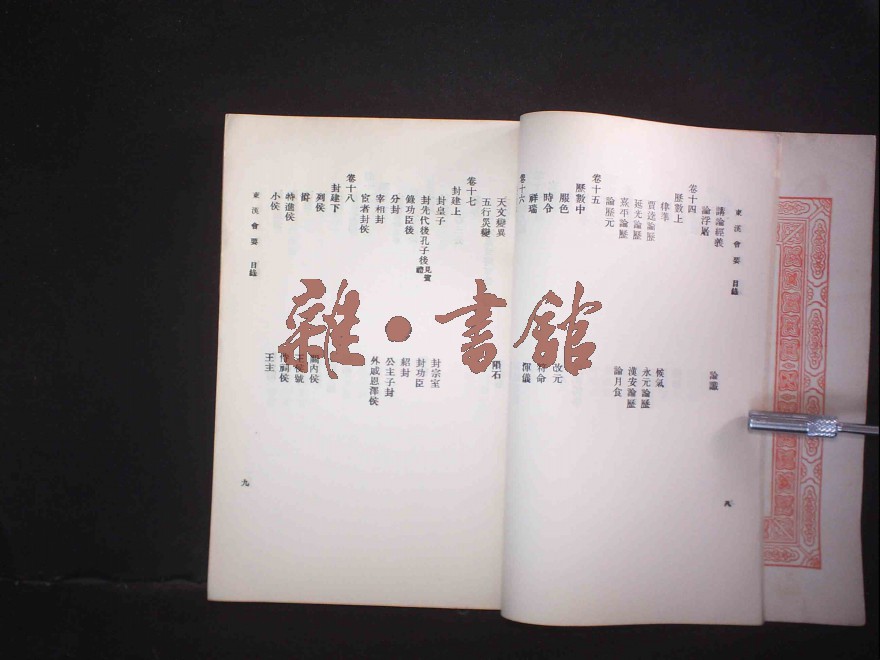 東漢會要 目錄
講論經義 論讖
論浮屠
卷十四
歷數上
律準 候氣
賈逵論歷 永元論歷
延光論歷 漢安論歷
熹平論歷 論月食
論歷元
卷十五
歷數中
服色 改元
時令
祥瑞 渾儀
卷十六
八
天文變異 隕石
五行災變
卷十七
封建上
封皇子 封宗室
封先代後孔子後見賓禮 封功臣
錄功臣後 紹封
分封 公主子封
宰相封 外戚恩澤侯
宦者封侯
卷十八
封建下
列侯 關內侯
特進侯 侍祠侯
小侯 王主
東漢會要 目錄
九
雜·書館